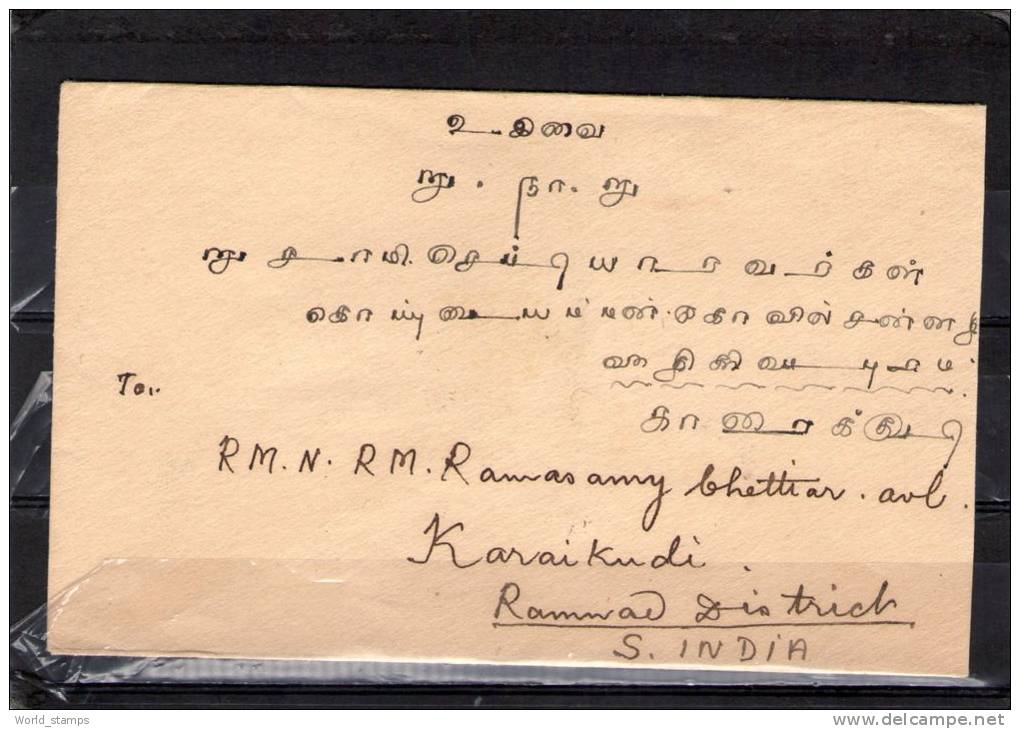 உ. இவை
று. நா. று
று சாமி. செட்டியாரவர்கள்
கொப்புடையம்மன். கோவில் சன்னதி
காரைக்குடி
To..
RM. N. RM. Ramasamy Chettiar. avl.
Karaikudi.
Ramnad District
S. INDIA
World_stamps
www.delcampe.net